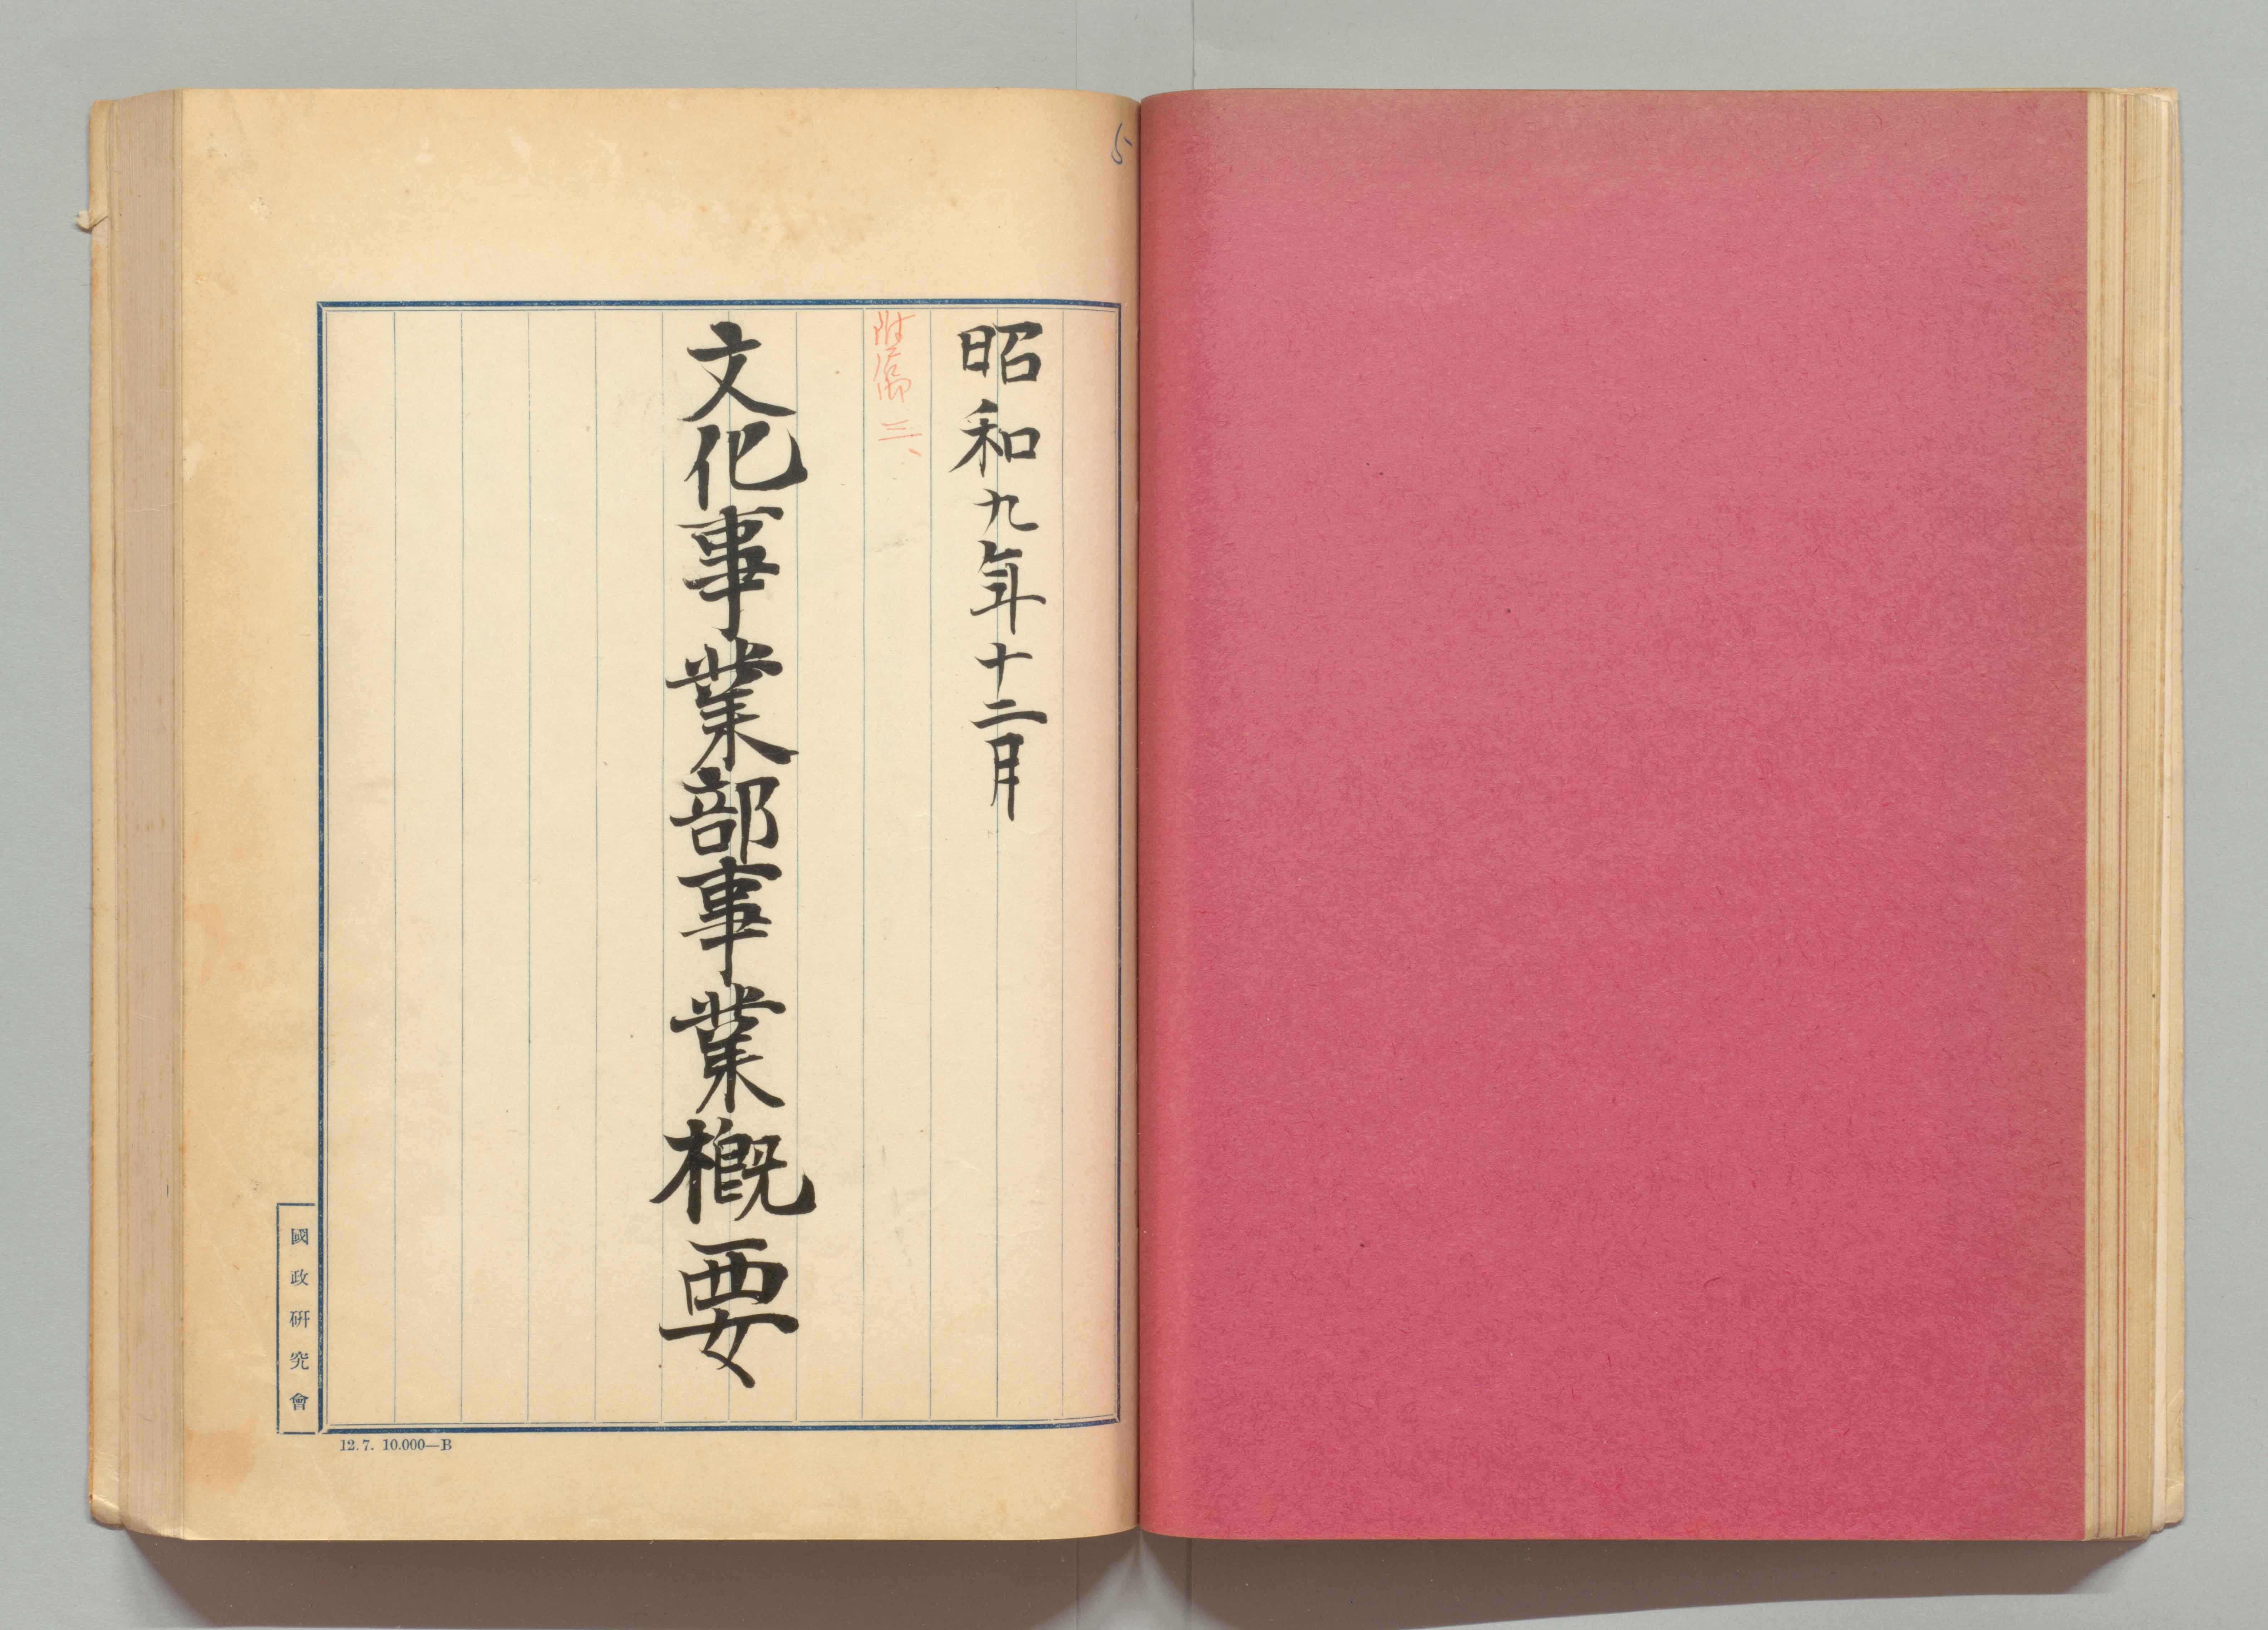 5
昭和九年十二月
附属 三、
文化事業部事業概要
國政研究會
12.7. 10.000—B